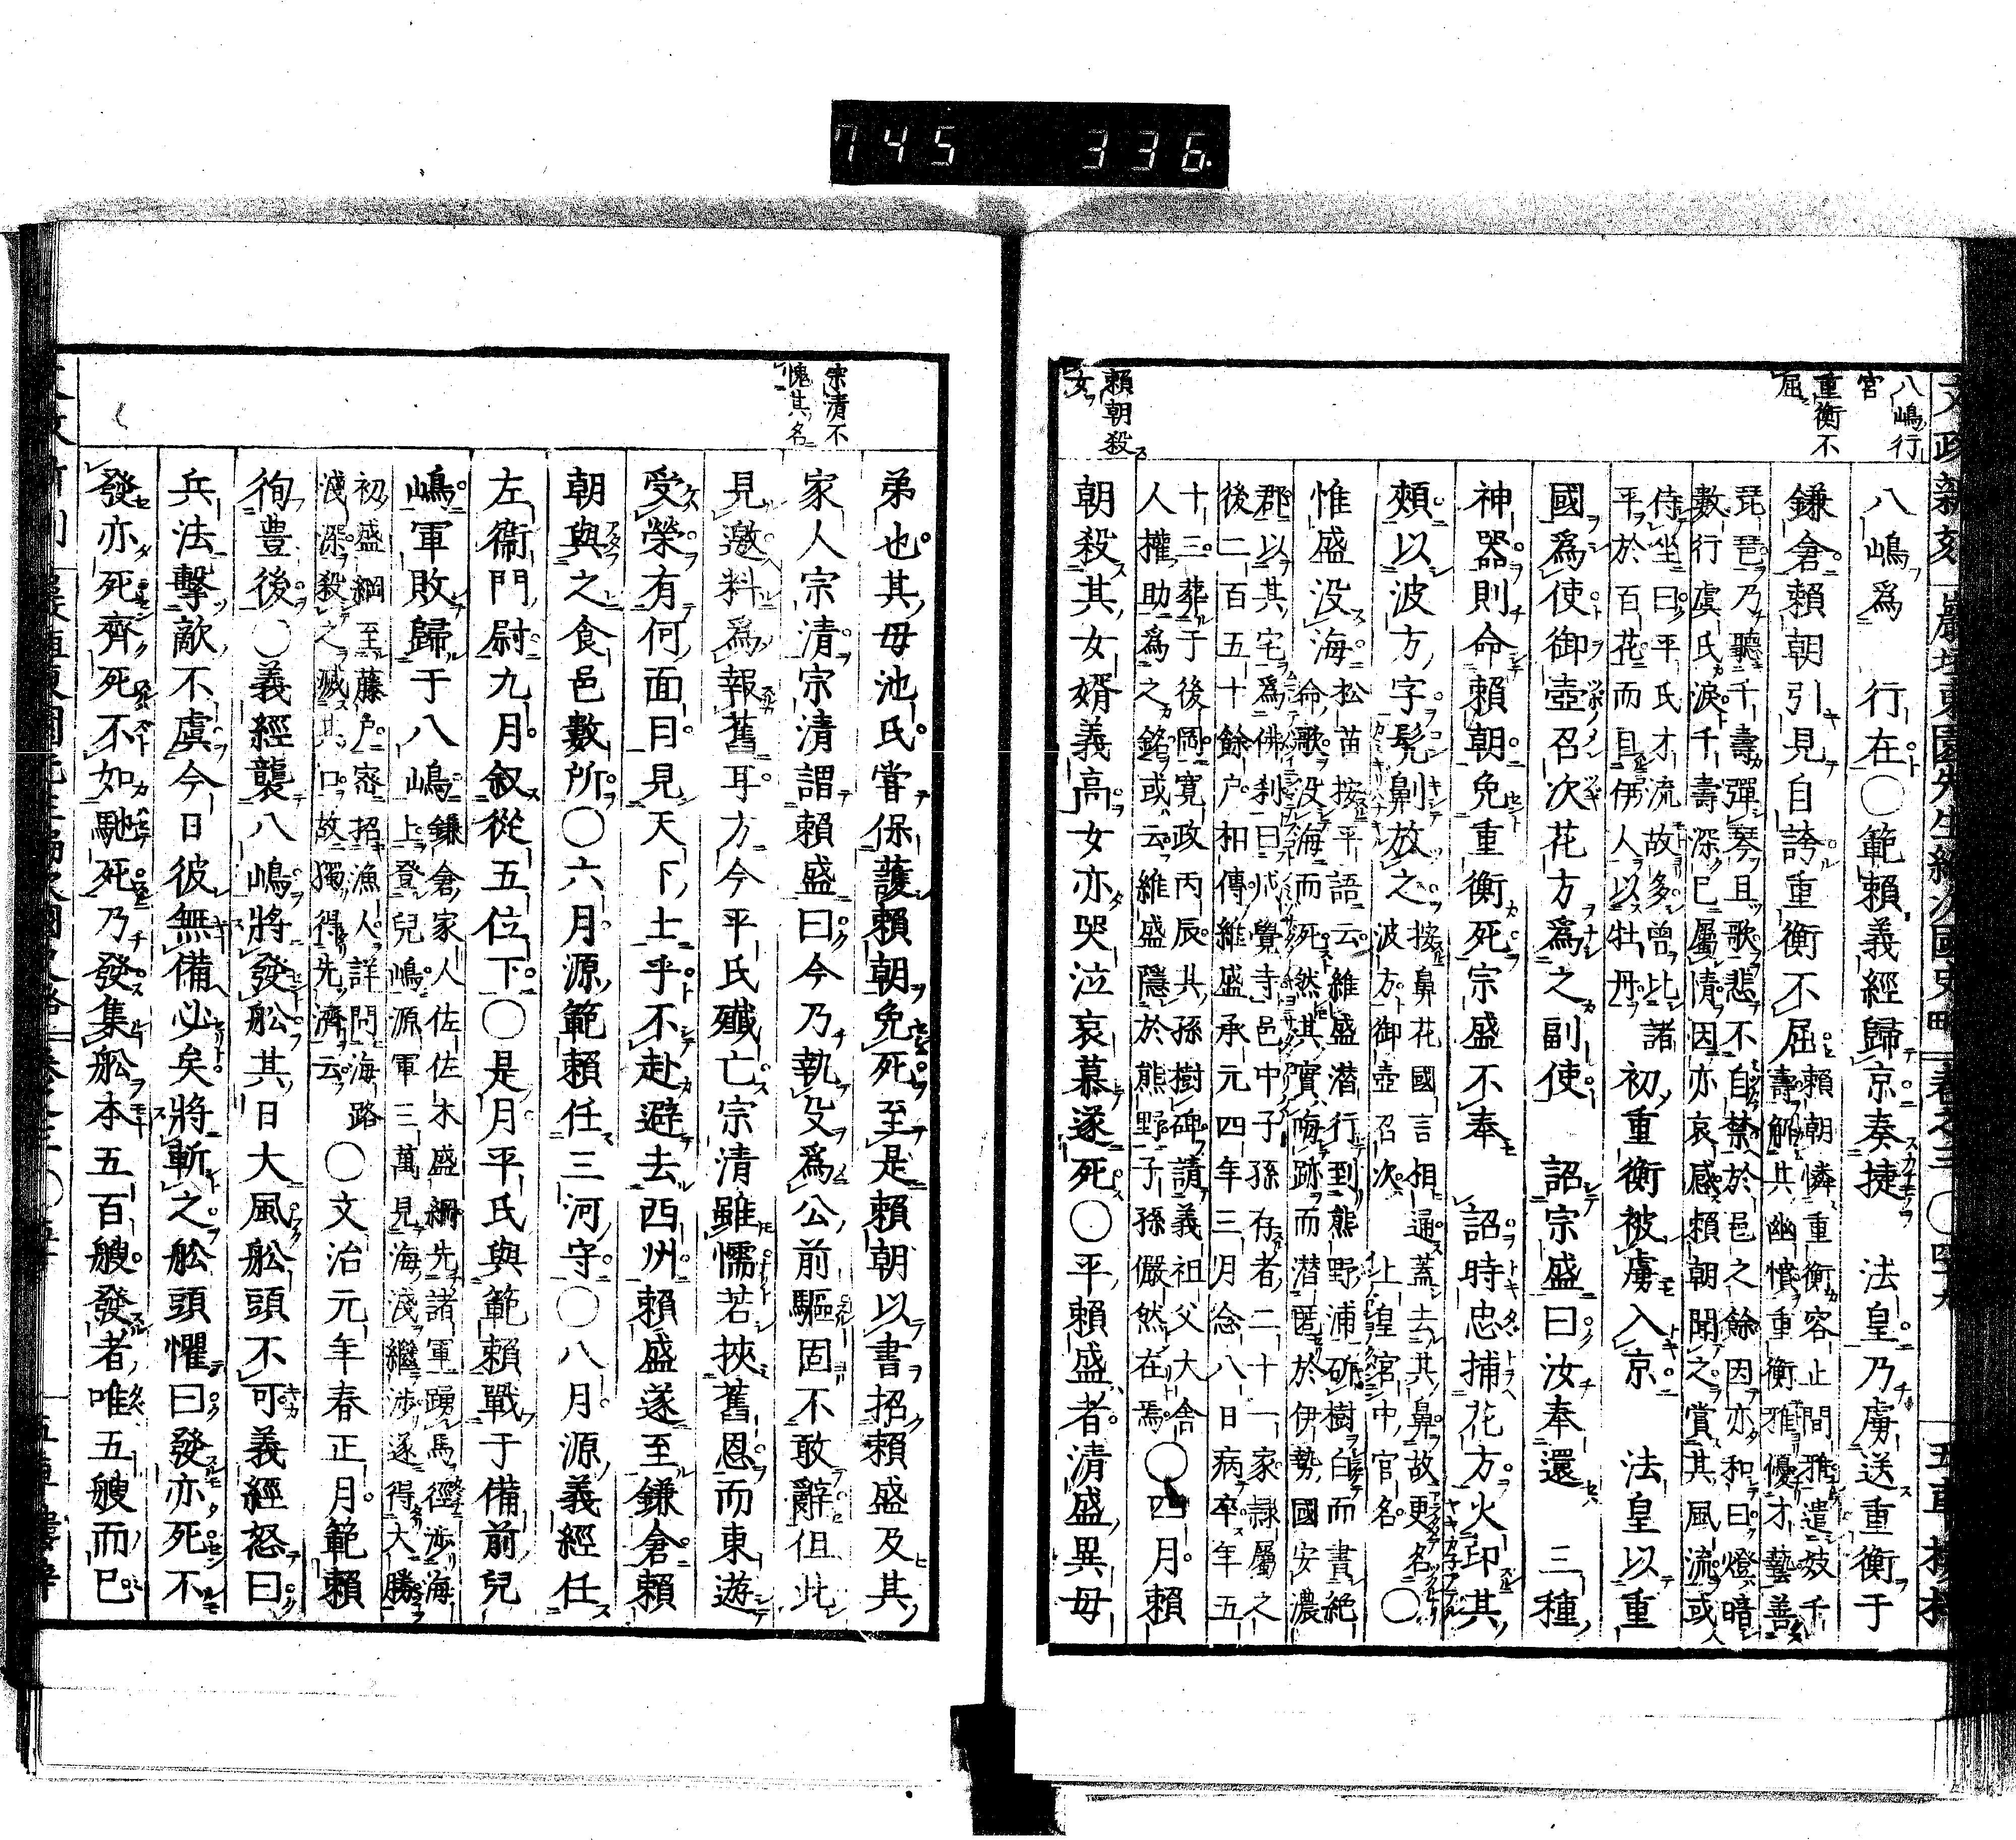 745 336
八嶋行
宮
重衡不
屈
賴朝殺
女
八嶋爲 行在〇範賴義經歸京奏捷 法皇乃虜送重衡于
鎌倉賴朝引見自誇重衡不屈
賴朝憐重衡容止間雅遣妓千
壽解其幽憤重衡雅優才藝善
琵琶乃聽千壽彈琴且歌悲不自禁於邑之餘因亦和曰燈暗
數行虞氏淚千壽深已屬情因亦哀感賴朝聞之賞其風流或
侍坐曰平氏才流故多曾比諸
平於百花而目伊人以牡丹
初重衡被虜入京 法皇以重
國爲使御壺召次花方爲之副使 詔宗盛曰汝奉還 三種
神器則命賴朝免重衡死宗盛不奉 詔時忠捕花方火印其
頰以波方字髡鼻劓放之
按鼻花國言相通蓋去其鼻故更名
波方御壺召次 上皇宮中官名
〇
惟盛没海
松苗按平語云維盛潜行到熊野浦斫樹白而書絕
命歌没海而死然其實晦跡而潜匿於伊勢國安濃
郡以其宅爲佛刹曰 覺寺邑中子孫存者二十一家隷屬之
後二百五十餘户相傳維盛承元四年三月念八日病卒年五
十三葬于後岡寬政丙辰其孫樹碑請義祖父大含
人權助爲之銘或云維盛隱於熊野子孫儼然在焉
〇四月賴
朝殺其女婿義高女亦哭泣哀慕遂死〇平賴盛者清盛異母
宗清不
愧其名
弟也其母池氏嘗保護賴朝免死至是賴朝以書招賴盛及其
家人宗清宗清謂賴盛曰今乃執殳爲公前驅固不敢辭但此
見邀料爲報舊耳方今平氏殲亡宗清雖懦若挾舊恩而東遊
受榮有何面目見天下士乎不赴避去西州賴盛遂至鎌倉賴
朝與之食邑數所〇六月源範賴任三河守〇八月源義經任
左衞門尉九月叙從五位下〇是月平氏與範賴戰于備前兒
嶋軍敗歸于八嶋
鎌倉家人佐佐木盛綱先諸軍踴馬徑渉海
上登兒嶋源軍三萬見海淺繼渉遂得大勝
初盛綱至藤户密招漁人詳問海路
淺深殺之滅其口故獨得先濟云
〇文治元年春正月範賴
徇豊後〇義經襲八嶋將發舩其日大風舩頭不可義經怒曰
兵法擊敵不虞今日彼無備必矣將斬之舩頭懼曰發亦死不
發亦死齊死不如馳死乃發集舩本五百艘發者唯五艘而已